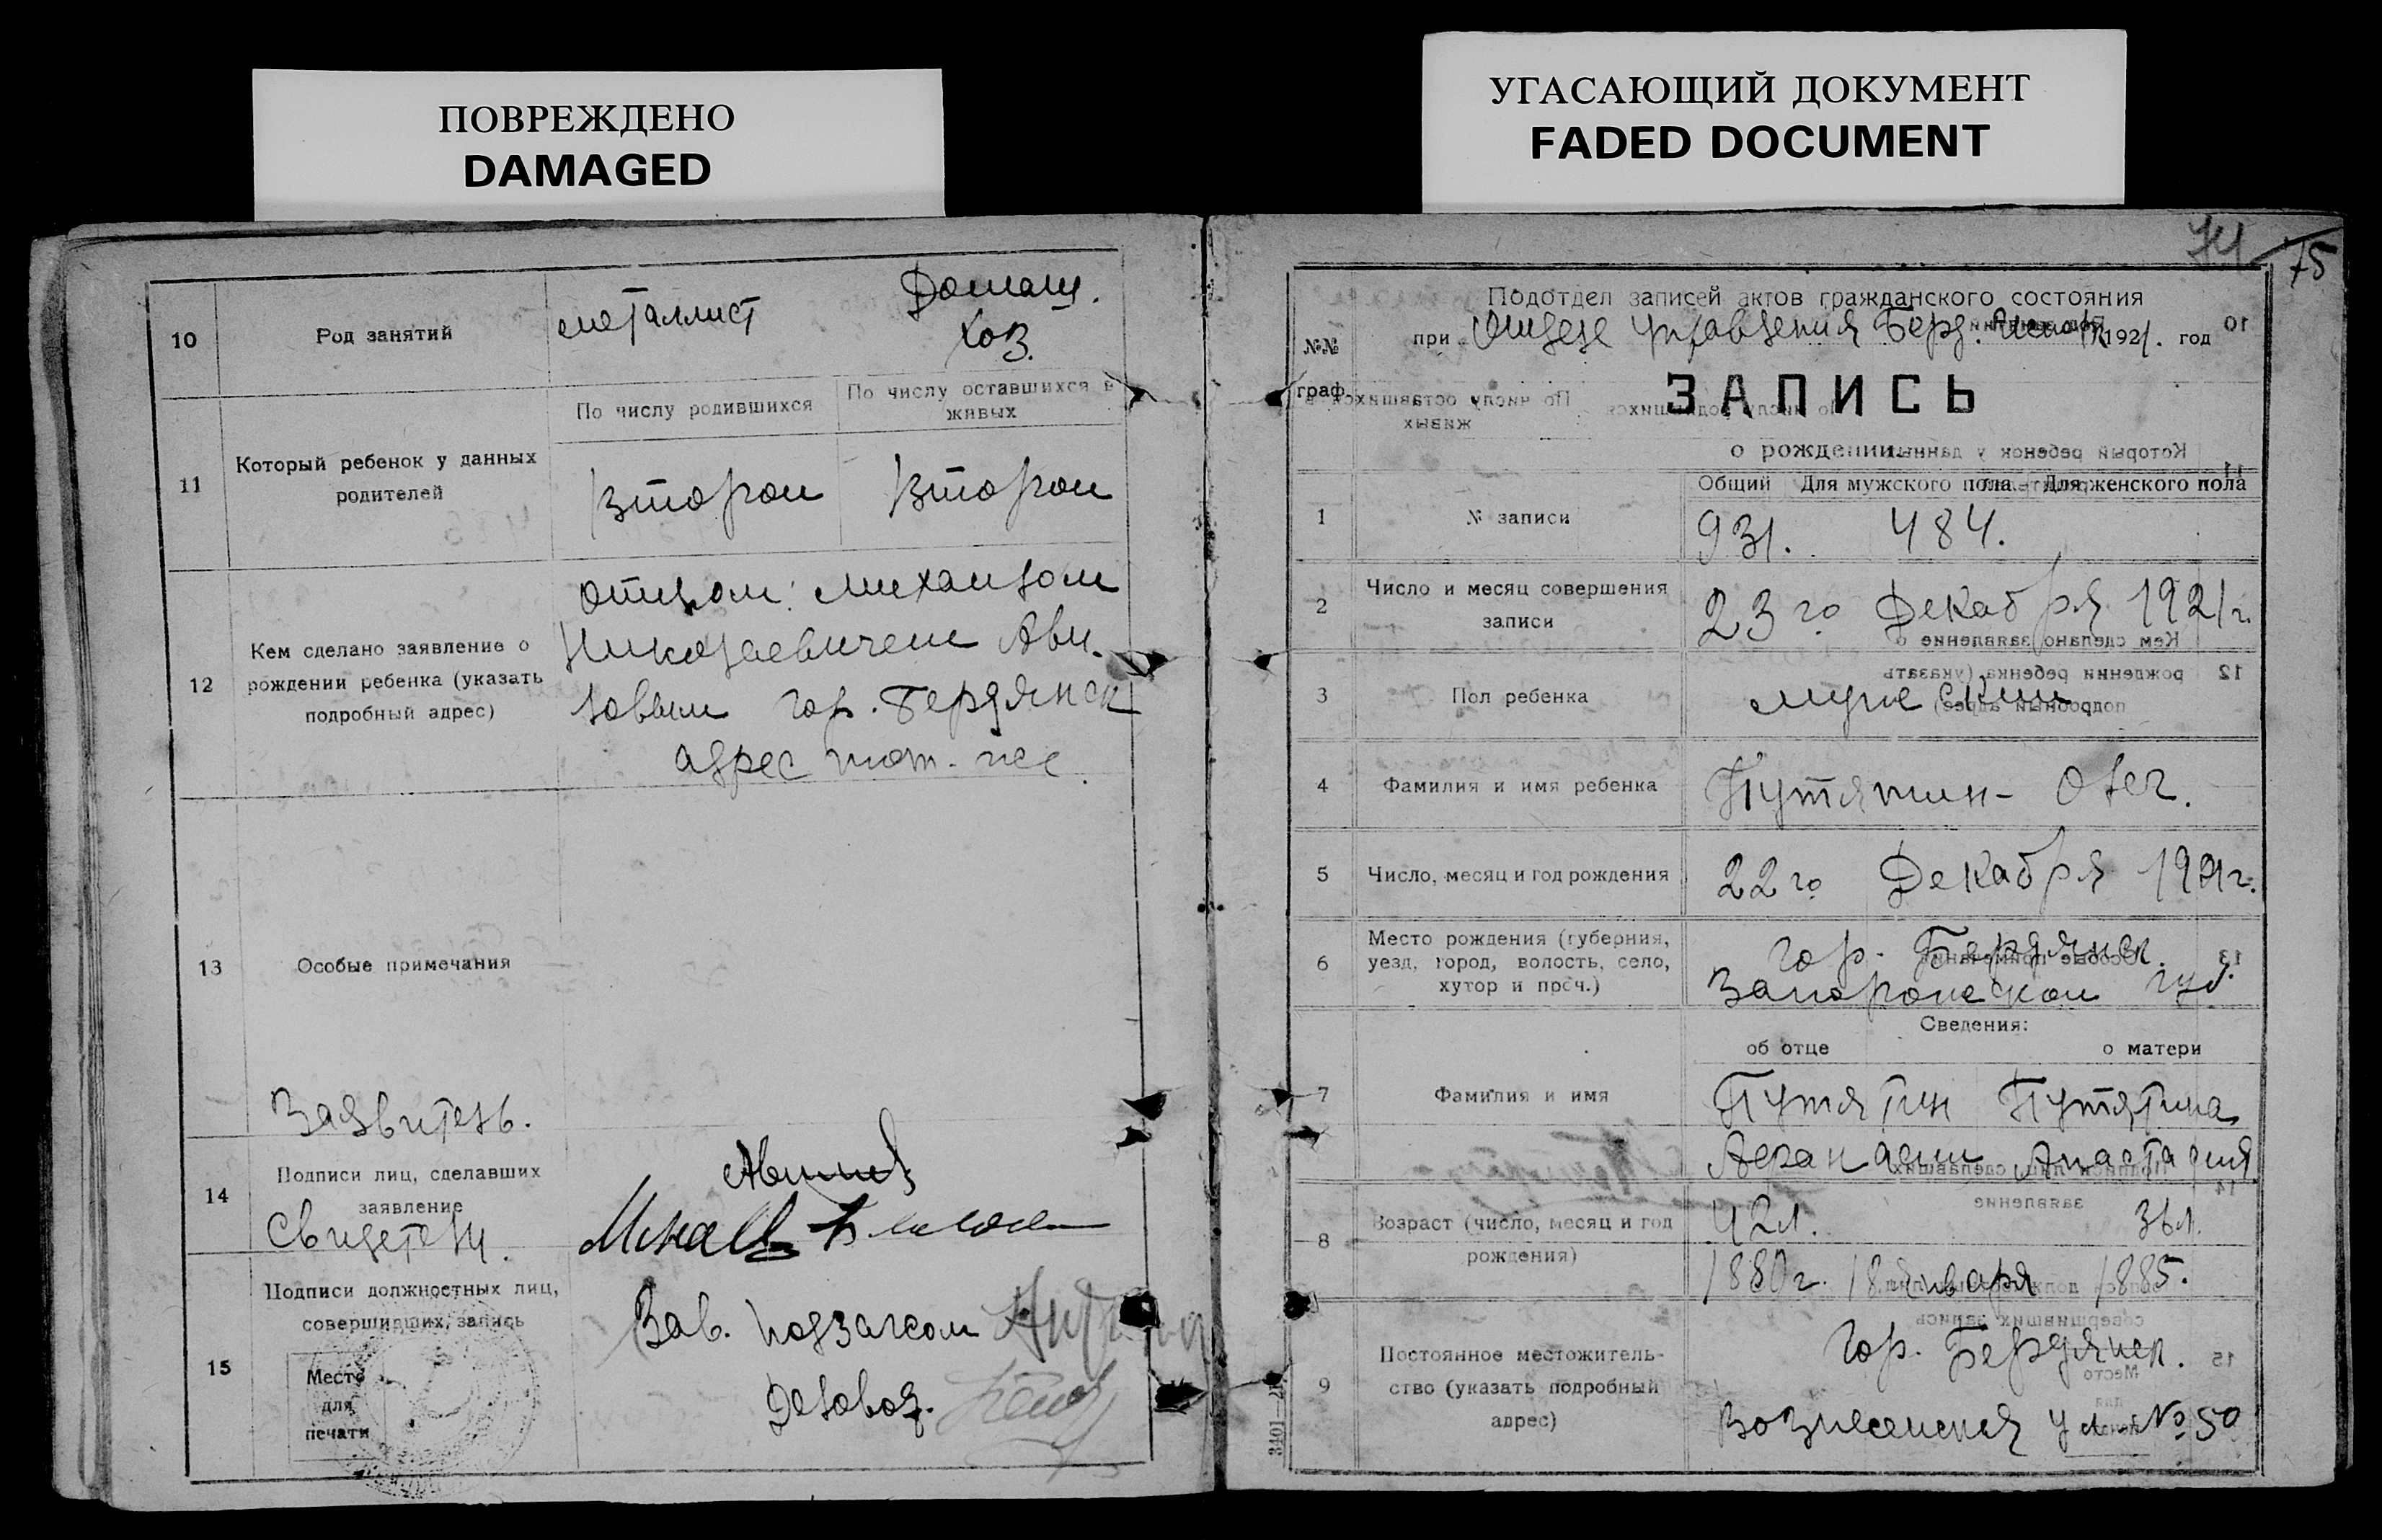 ПОВРЕЖДЕНО
DAMAGED
УГАСАЮЩИЙ ДОКУМЕНТ
FADED DOCUMENT
10
Род занятий
металлист
Домаш.
хоз.
11
Который ребенок у данных
родителей
По числу родившихся
По числу оставшихся в
живых
второй
второй
12
Кем сделано заявление о
рождении ребенка (указать
подробный адрес)
отцом: Михаилом
Николаевичем Ави-
ловым гор. Бердянск
адрес тот-же.
13
Особые примечания
Заявитель.
14
Подписи лиц, сделавших
заявление
Свидетели.
15
Подписи должностных лиц,
совершивших запись
Место
для
печати
Зав. подзагсом
Деловод.
74
75
№№
граф.
Подотдел записей актов гражданского состояния
при Отделе Управления Берд. 1921. год
ЗАПИСЬ
о рождении
Общий
Для мужского пола
Для женского пола
1
№ записи
931.
484.
2
Число и месяц совершения
записи
23го Декабря 1921г.
3
Пол ребенка
мужеский
4
Фамилия и имя ребенка
Путятин- Олег.
5
Число, месяц и год рождения
22го Декабря 1921г.
6
Место рождения (губерния,
уезд, город, волость, село,
хутор и проч.)
гор. Бердянск.
Запорожской губ.
Сведения:
об отце
о матери
7
Фамилия и имя
Путятин
Путятина
Афанасий
Анастасия
8
Возраст (число, месяц и год
рождения)
42л.
36л.
1880г. 18 января
1885.
9
Постоянное местожитель-
ство (указать подробный
адрес)
гор. Бердянск.
Вознесенская ул. № 50
3401